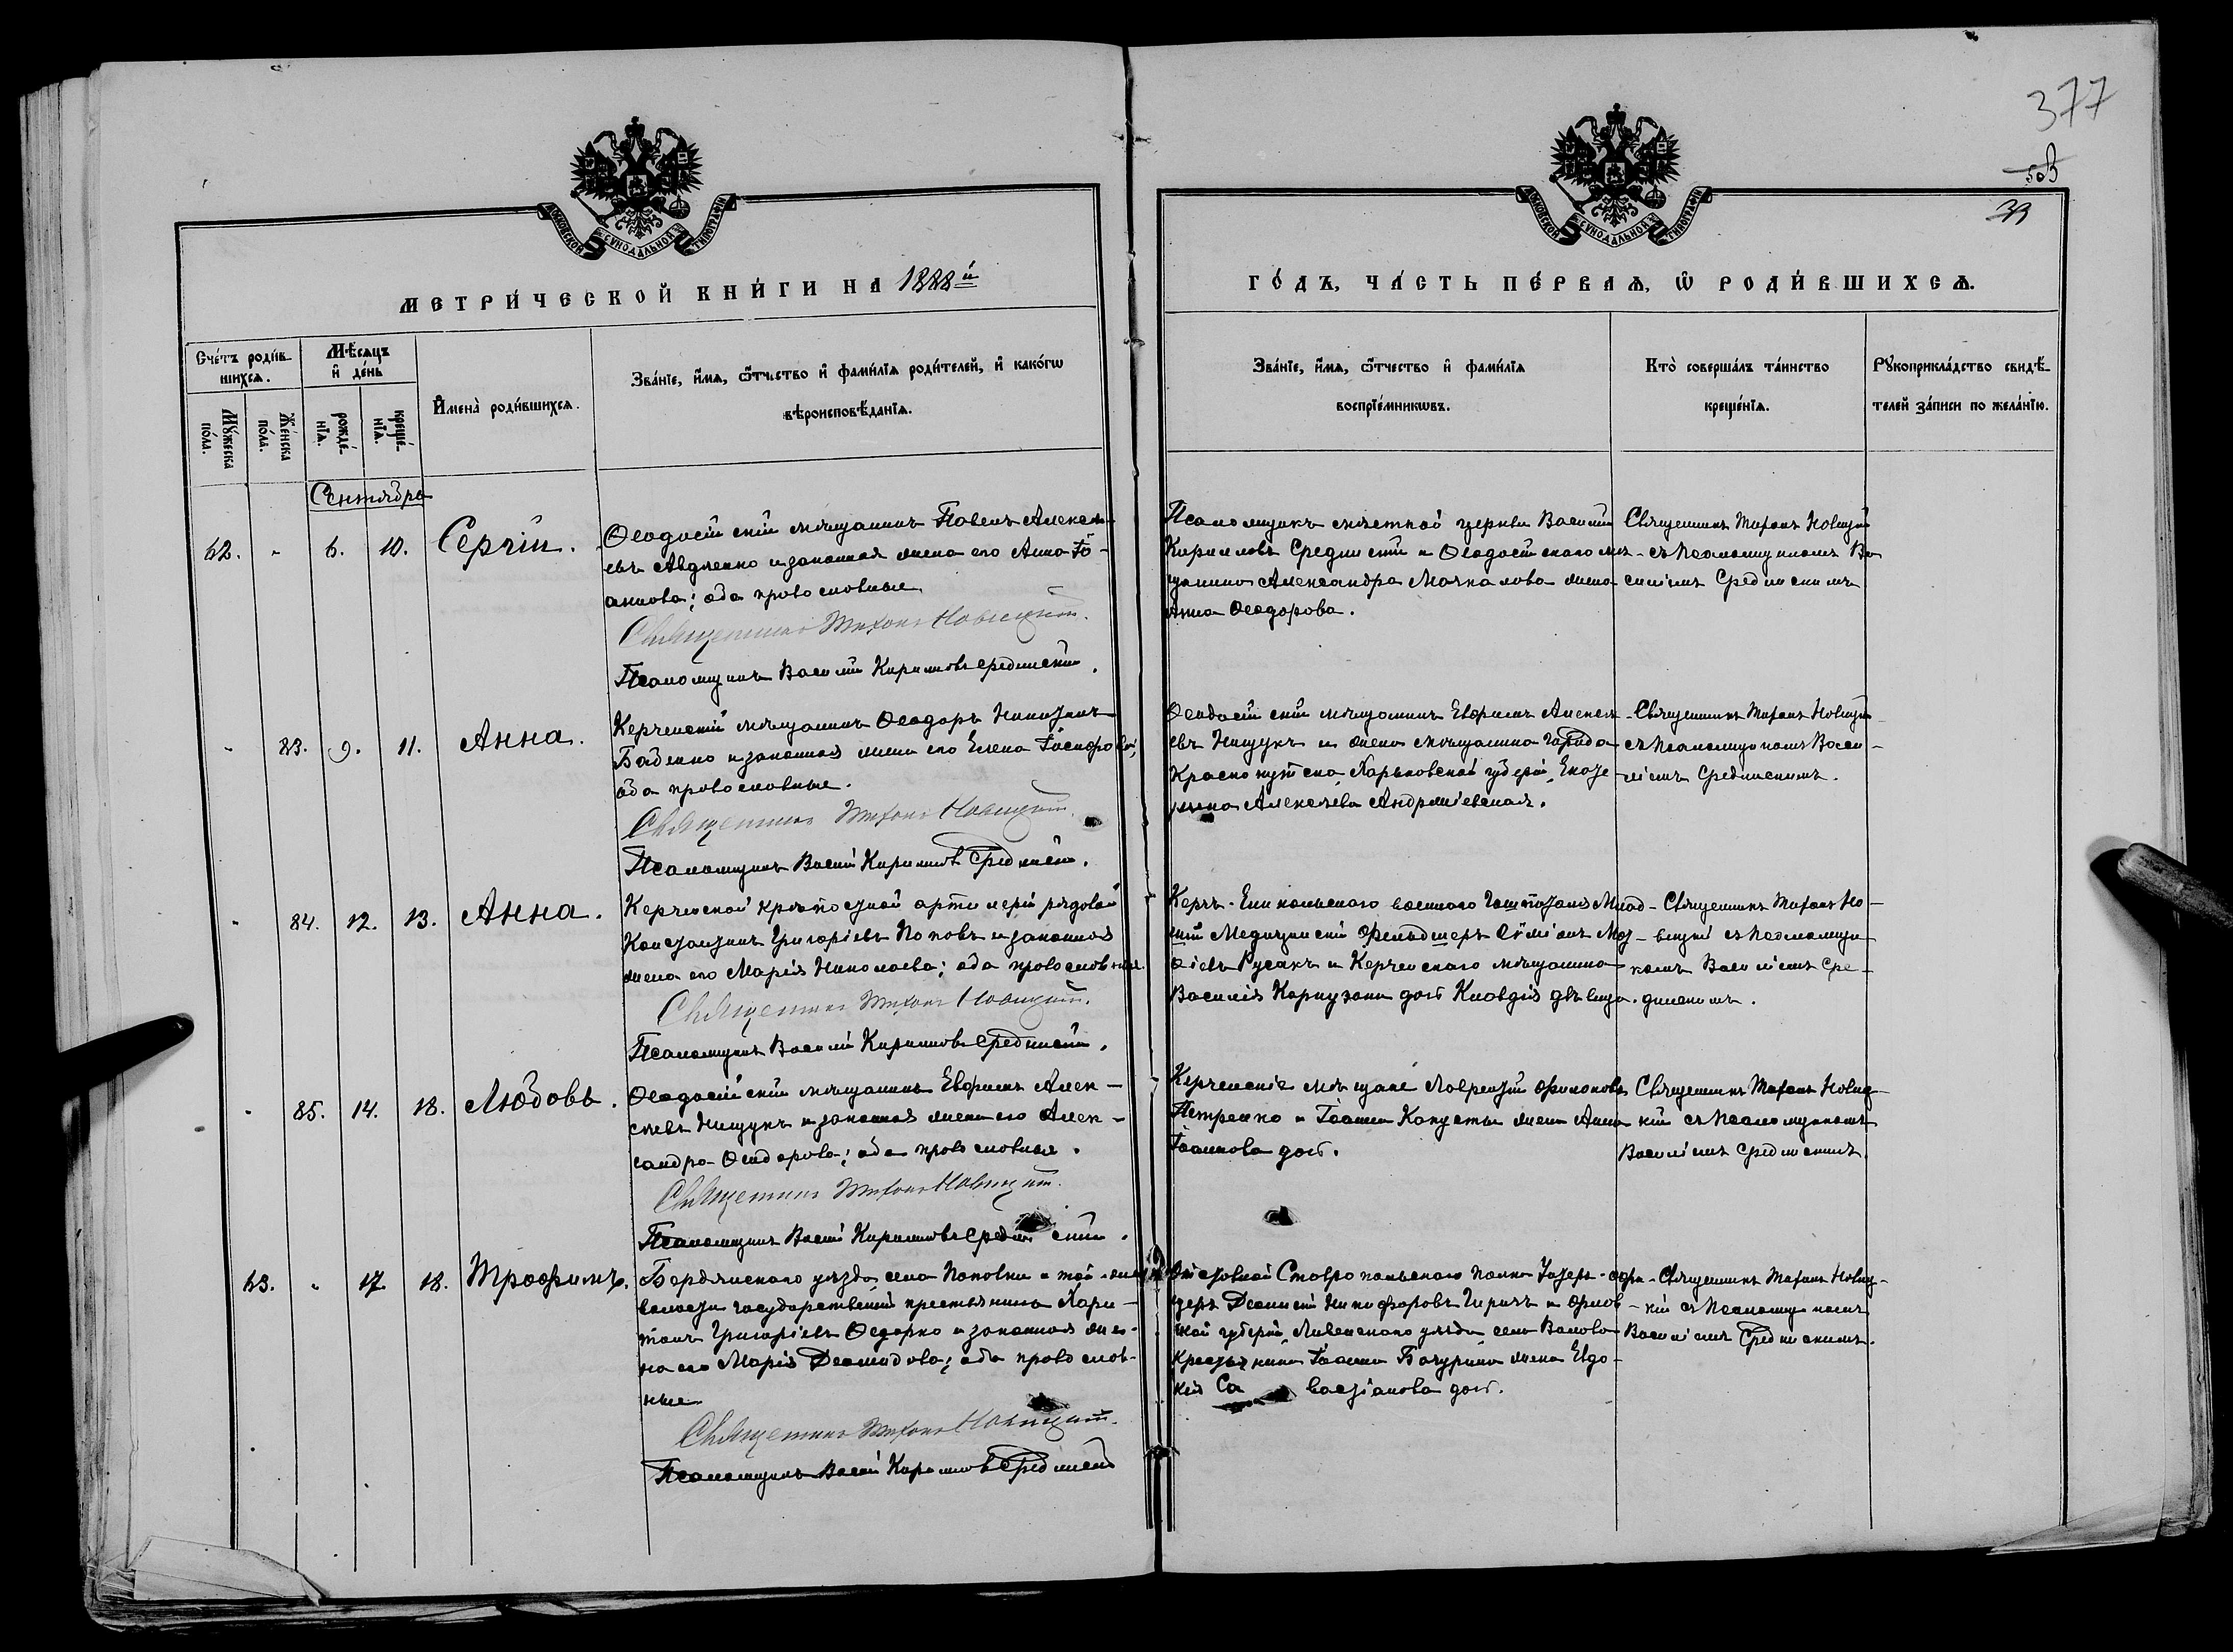 377
503
39
МОСКОВСКОЙ СУНОДАЛЬНОЙ ТИПОГРАФІИ
МОСКОВСКОЙ СУНОДАЛЬНОЙ ТИПОГРАФІИ
МЕТРИ́ЧЕСКОЙ КНИ́ГИ НА 1888й
ГО́ДЪ, ЧА́СТЬ ПЕ́РВАѦ, Ѽ РОДИ́ВШИХСѦ.
Сче́тъ роди́в-
шихсѧ.
Мѣ́сѧцъ
и҆ де́нь
Мꙋ́жеска
по́ла.
Же́нска
по́ла.
рожде́-
нїѧ.
креще́-
нїѧ.
И҆мена̀ роди́вшихсѧ.
Зва́нїе, и҆́мѧ, ѻ҆́тчество и҆ фами́лїѧ роди́телей, и҆ како́гѡ
вѣроисповѣ́данїѧ.
Зва́нїе, и҆́мѧ, ѻ҆́тчество и҆ фами́лїѧ
воспрїе́мникѡвъ.
Кто̀ соверша́лъ та́инство
креще́нїѧ.
Рꙋкоприкла́дство свидѣ́-
телей за́писи по жела́нїю.
Сентября
62. " 6. 10. Сергій.
Ѳеодосійскій мѣщанинъ Павелъ Алексѣ-
евъ Авдѣенко и законная жена его Анна Іо-
аннова; оба православные
Священникъ Тихонъ Новицкій.
Псаломщикъ Василій Кирилловъ Срединскій.
Псаломщикъ мѣстной церкви Василій
Кирилловъ Срединскій и Ѳеодосійскаго мѣ-
щанина Александра Мачкалова жена
Анна Ѳеодорова.
Священникъ Тихонъ Новицкій
съ Псаломщикомъ Ва-
силіемъ Срединскимъ
" 83. 9. 11. Анна.
Керченскій мѣщанинъ Ѳеодоръ Никитинъ
Баденко и законная жена его Елена Гаспарова;
оба православные.
Священникъ Тихонъ Новицкій.
Псаломщикъ Василій Кирилловъ Срединскій.
Ѳеодосійскій мѣщанинъ Евфимъ Алексѣ-
евъ Нищукъ и жена мѣщанина города
Краснокутска, Харьковской губерніи, Екате-
рина Алексѣева Андріевская.
Священникъ Тихонъ Новицкій
съ Псаломщикомъ Васи-
ліемъ Срединскимъ.
" 84. 12. 13. Анна.
Керченской крѣпостной артиллеріи рядовой
Константинъ Григоріевъ Поповъ и законная
жена его Марія Николаева; оба православные.
Священникъ Тихонъ Новицкій.
Псаломщикъ Василій Кирилловъ Срединскій.
Керчь-Еникольскаго военнаго Госпиталя Млад-
шій Медицинскій Фельдшеръ
Русакъ и Керченскаго мѣщанина
Василія дочь Клавдія дѣвица.
Священникъ Тихонъ Но-
вицкій съ Псаломщи-
комъ Василіемъ Сре-
динскимъ.
" 85. 14. 18. Любовь.
Ѳеодосійскій мѣщанинъ Евфимъ Алек-
сѣевъ Нищукъ и законная жена его Алек-
сандра Ѳеодорова; оба православные.
Священникъ Тихонъ Новицкій.
Псаломщикъ Василій Кирилловъ Срединскій.
Керченскіе мѣщане Лаврентій Филоновъ
Петренко и Іоанна Капусты жена Анна
Іоаннова дочь.
Священникъ Тихонъ Новиц-
кій съ Псаломщикомъ
Василіемъ Срединскимъ.
63. " 17. 18. Трофимъ.
Бердянскаго уѣзда села Поповки и той-же
волости государственный крестьянинъ Хари-
тонъ Григоріевъ Федорко и законная же-
на его Марія Деомидова; оба православ-
ные
Священникъ Тихонъ Новицкій.
Псаломщикъ Василій Кирилловъ Срединскій
Отставной Ставропольскаго полка Унтеръ-офи-
церъ Діонисій Никифоровъ и Орлов-
ской губерніи, Ливенскаго уѣзда села Валова
Крестьянина Іоанна Бачурина жена Евдо-
кія Са вастіанова дочь.
Священникъ Тихонъ Новиц-
кій съ Псаломщикомъ
Василіемъ Срединскимъ.